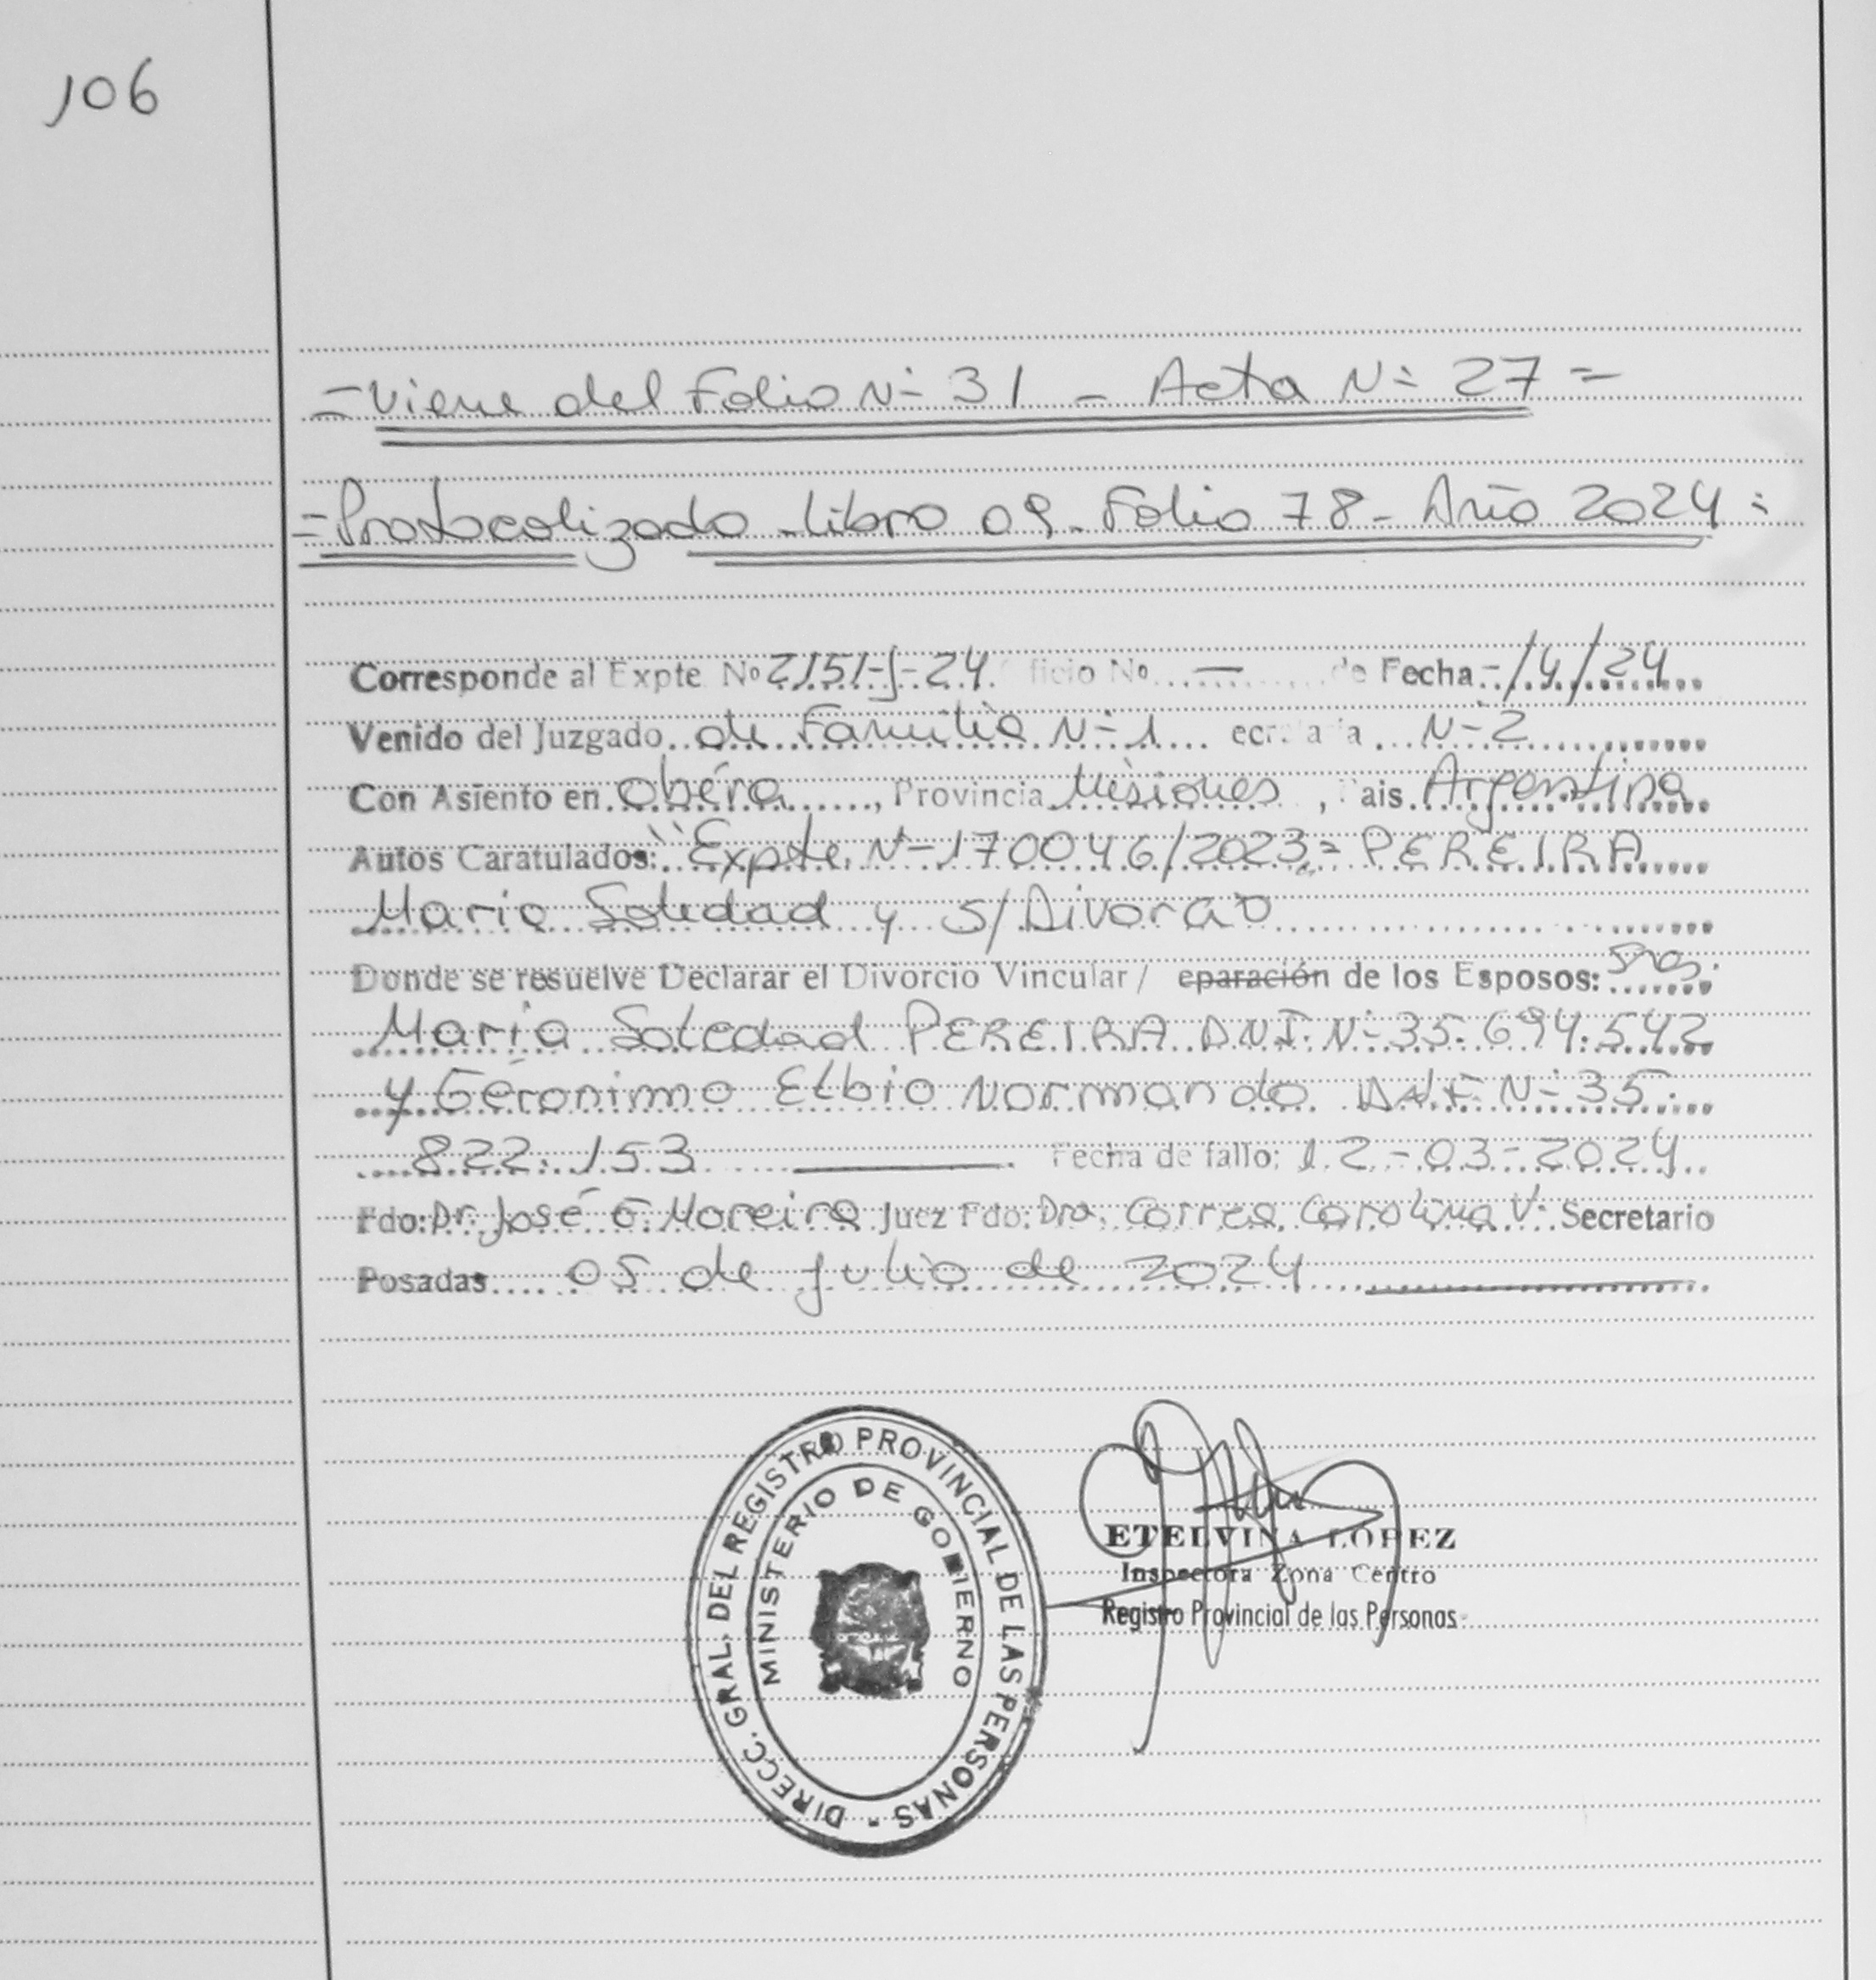 106
=Viene del Folio N° 31 - Acta N° 27=
=Protocolizado-Libro 09-Folio 78-Año 2024=
Corresponde al Expte Nº 2151-J-24 ficio Nº — de Fecha -/4/24
Venido del Juzgado de Familia N° 1 ecretaria N° 2
Con Asiento en Oberá, Provincia Misiones, Pais Argentina
Autos Caratulados: "Expte. N° 170046/2023= PEREIRA
Maria Soledad y s/Divorcio
Donde se resuelve Declarar el Divorcio Vincular/ eparación de los Esposos: Sres.
Maria Soledad PEREIRA D.N.I. N° 35.694.542
y Gerónimo Elbio Normando D.N.I. N° 35.
822.153 Fecha de fallo: 12-03-2024
Fdo: Dr. José G. Moreira Juez Fdo: Dra. Correa, Carolina V. Secretario
Posadas 05 de Julio de 2024
DIRECC. GRAL. DEL REGISTRO PROVINCIAL DE LAS PERSONAS -
MINISTERIO DE GOBIERNO
ETELVINA LOPEZ
Inspectora Zona Centro
Registro Provincial de las Personas